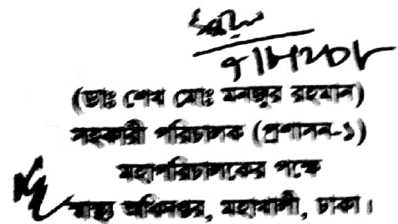 (ডাঃ শেখ মোঃ মনজুর রহমান)
সহকারী পরিচালক (প্রশাসন-১)
মহাপরিচালকের পক্ষে
স্বাস্থ্য অধিদপ্তর, মহাখালী, ঢাকা।